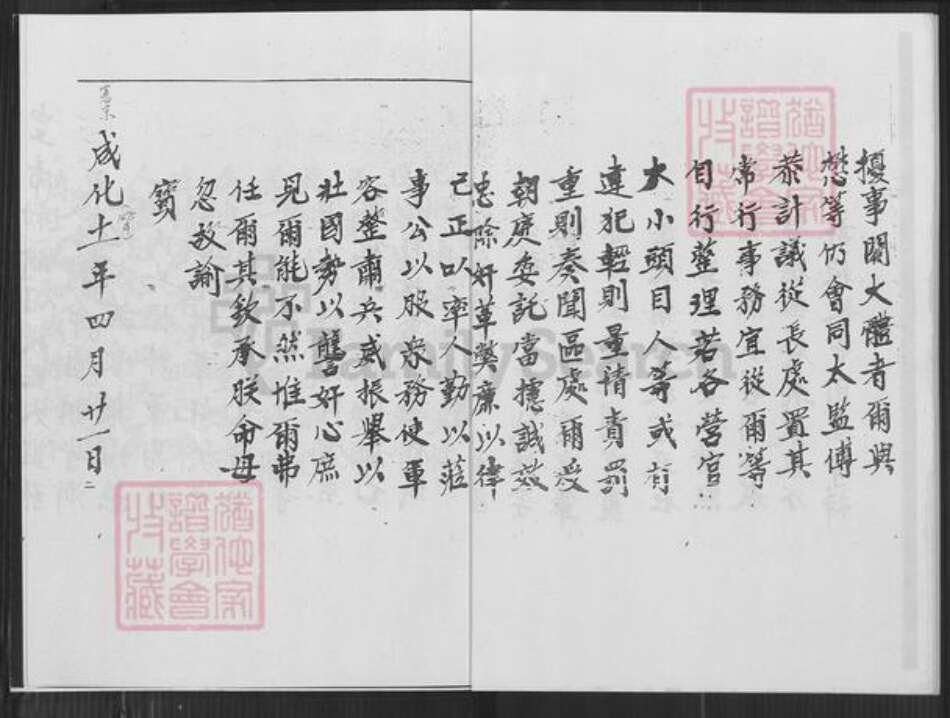 擾事關大體者爾與
懋等仍會同太監傅
恭計議從長處置其
常行事務宜從爾等
自行整理若各營官
大小頭目人等或有
違犯輕則量情責罰
重則奏聞區處爾受
朝廷委託當攄誠效
忠除奸革獘廉以律
己正以率人勤以蒞
事公以服眾務使軍
容整肅兵威振舉以
壯國勢以讋奸心庶
見爾能不然惟爾弗
任爾其欽承朕命毋
忽故諭
寶
憲宗
成化十一年四月廿一日
FamilySearch